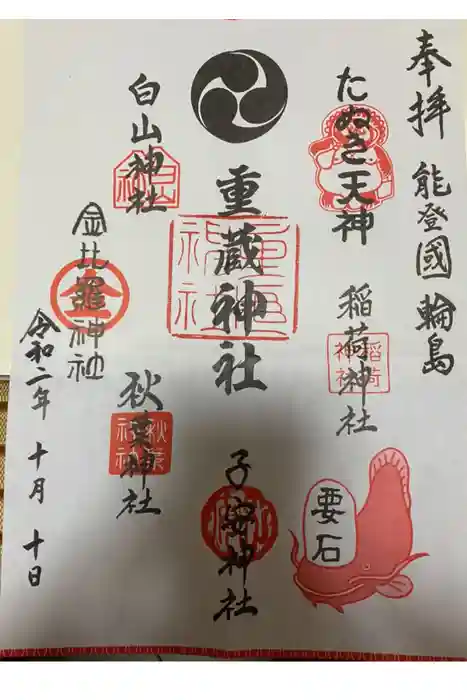 奉拝
能登國輪島
たぬき天神
稲荷神社
稲荷神社
要石
重蔵神社
重蔵神社
子安神社
白山神社
白山
金比羅神社
金
秋葉神社
秋葉神社
令和二年 十月 十日